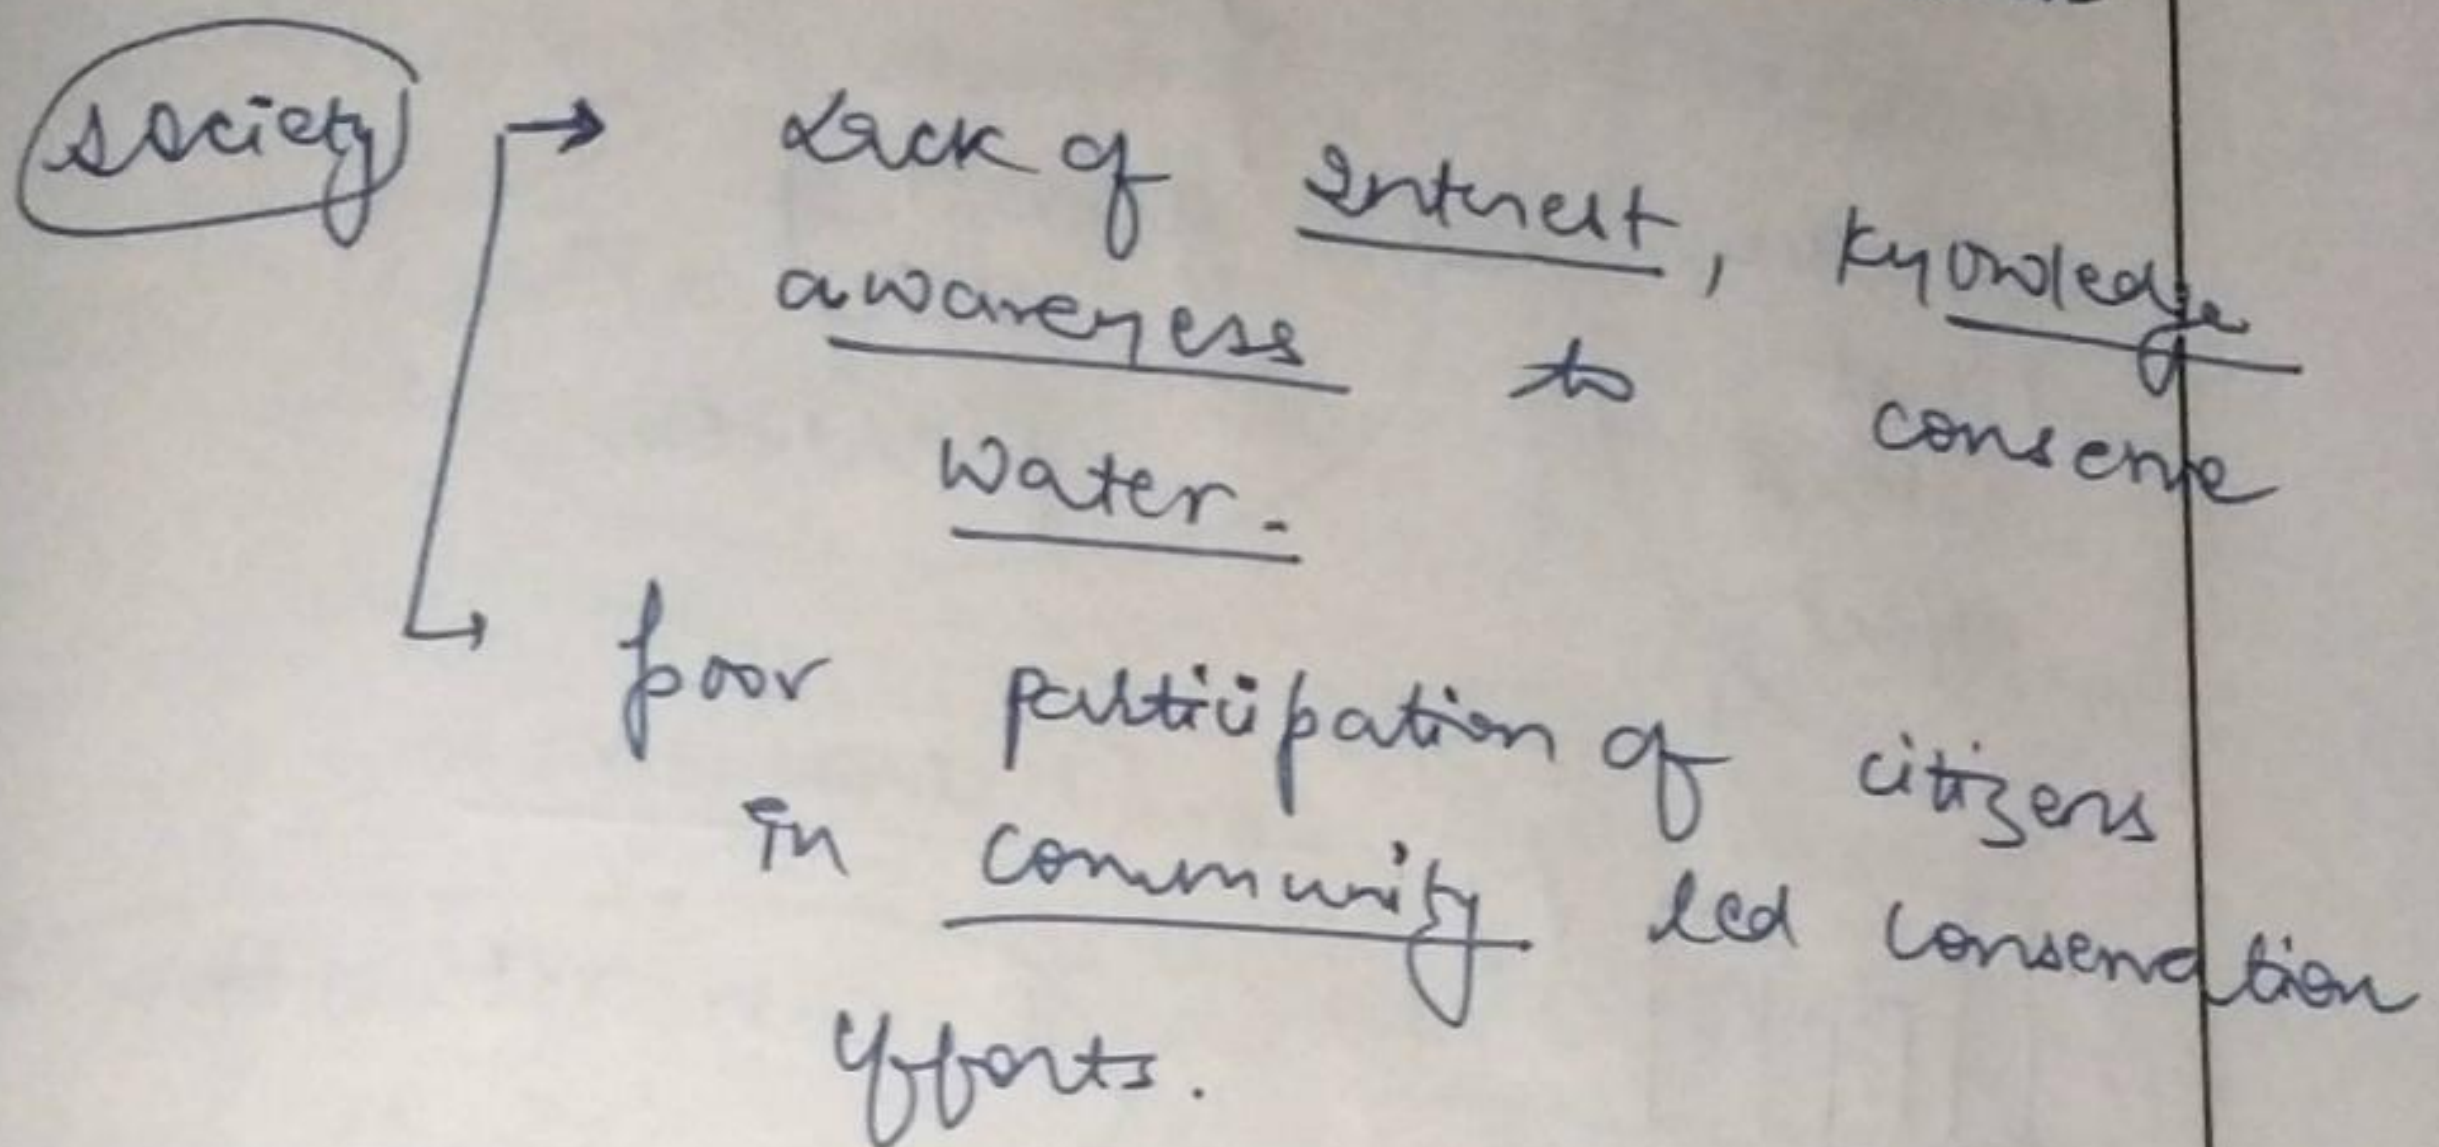 society → Lack of Interest, Knowledge
awareness to conserve
Water.
↳ poor participation of citizens
in community led conservation
efforts.